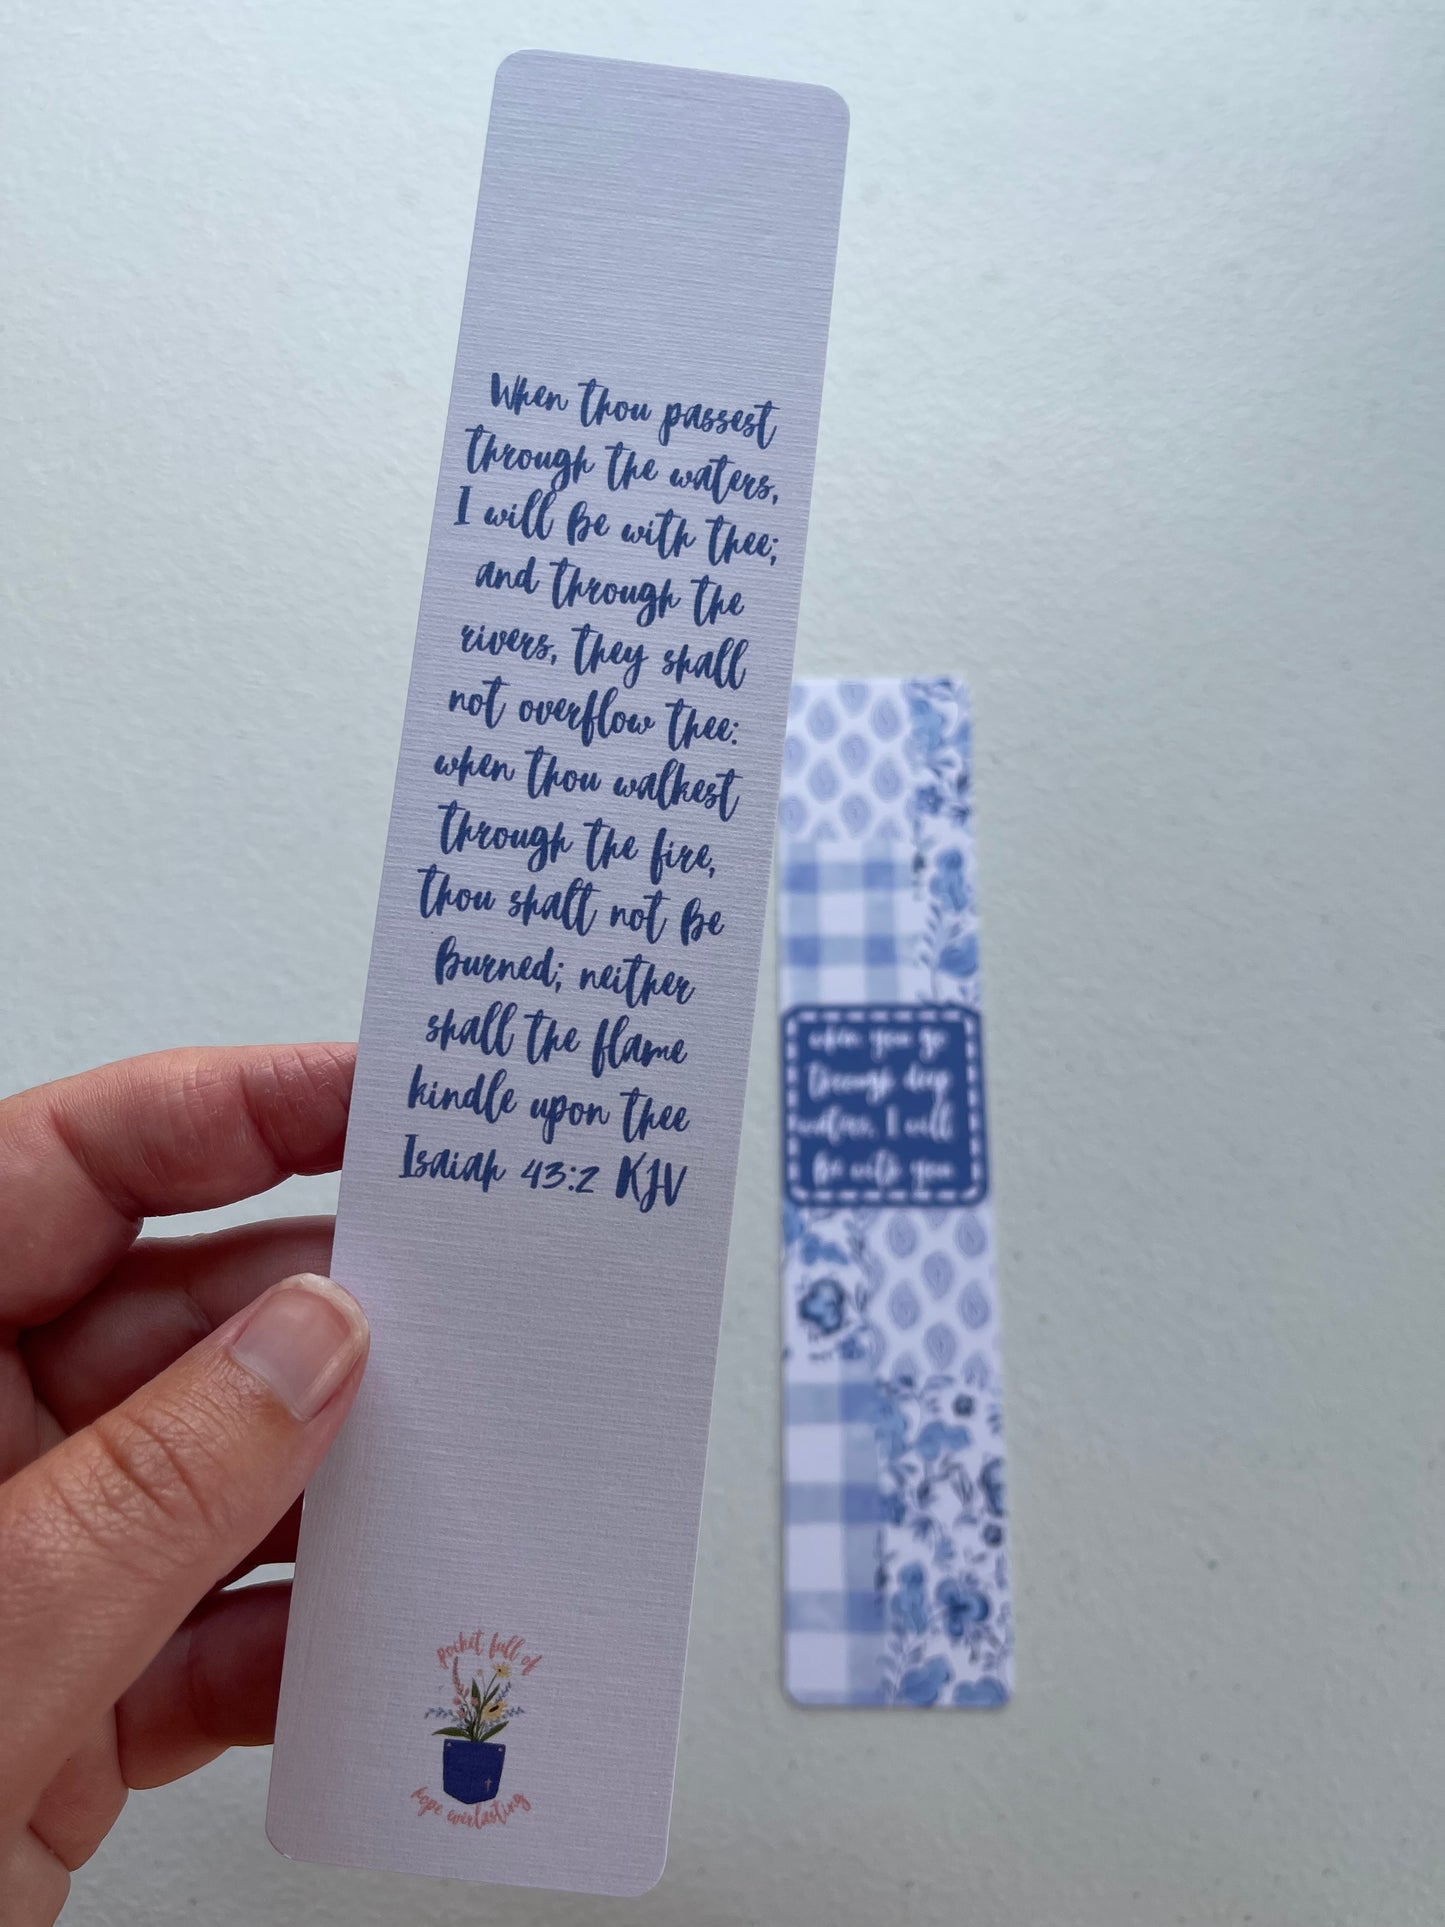 When thou passest
through the waters,
I will Be with thee;
and through the
rivers, they shall
not overflow thee:
when thou walkest
through the fire,
thou shalt not Be
Burned; neither
shall the flame
kindle upon thee
Isaiah 43:2 KJV
pocket full of
hope everlasting
when you go
through deep
waters, I will
Be with you